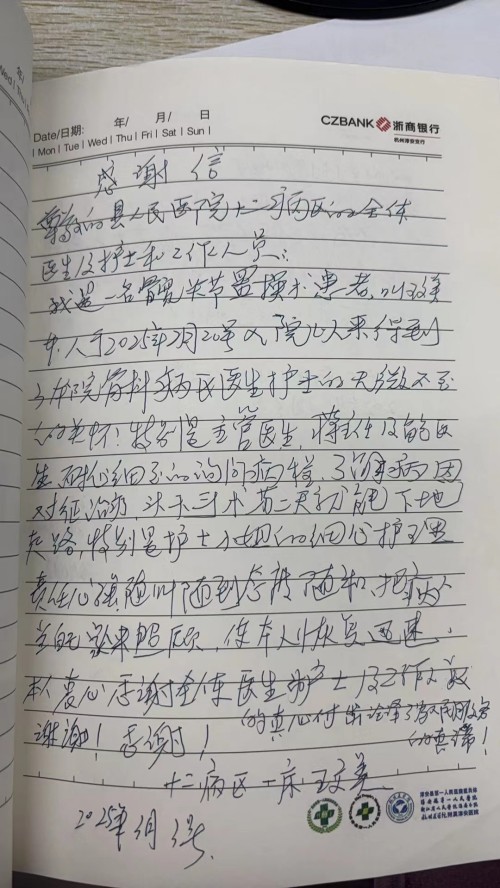 Date/日期: 年/ 月/ 日
Mon Tue Wed Thu Fri Sat Sun
CZBANK 浙商银行
杭州淳安支行
感谢信
尊敬的县人民医院十二病区的全体
医生及护士和工作人员:
我是一名髋关节置换术患者,叫
本人于2025年2月20号入院以来得到
院骨科病区医生护士的无微不至
的关怀!特别是主管医生,主任及
生 细了的询问病程,了解病因
对征治疗,术第二天就能下地
走路,特别是护士小姐的细心护理
责任心强随叫随到态度随和,把病人
当自家来照顾,使本人恢复迅速.
本人衷心感谢全体医生护士及工作人员
的真心付出诠释了为人民服务
的真谛!
谢谢!感谢!
十二病区一床
2025年 月 号.
淳安县第一人民医院